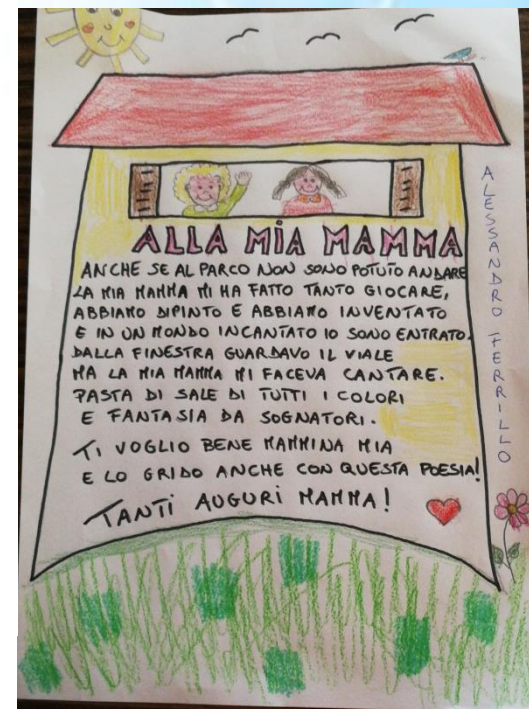 ALLA MIA MAMMA
ANCHE SE AL PARCO NON SONO POTUTO ANDARE
LA MIA MAMMA MI HA FATTO TANTO GIOCARE,
ABBIAMO DIPINTO E ABBIAMO INVENTATO
E IN UN MONDO INCANTATO IO SONO ENTRATO.
DALLA FINESTRA GUARDAVO IL VIALE
MA LA MIA MAMMA MI FACEVA CANTARE.
PASTA DI SALE DI TUTTI I COLORI
E FANTASIA DA SOGNATORI.
TI VOGLIO BENE MAMMINA MIA
E LO GRIDO ANCHE CON QUESTA POESIA!
TANTI AUGURI MAMMA!
ALESSANDRO FERRILLO